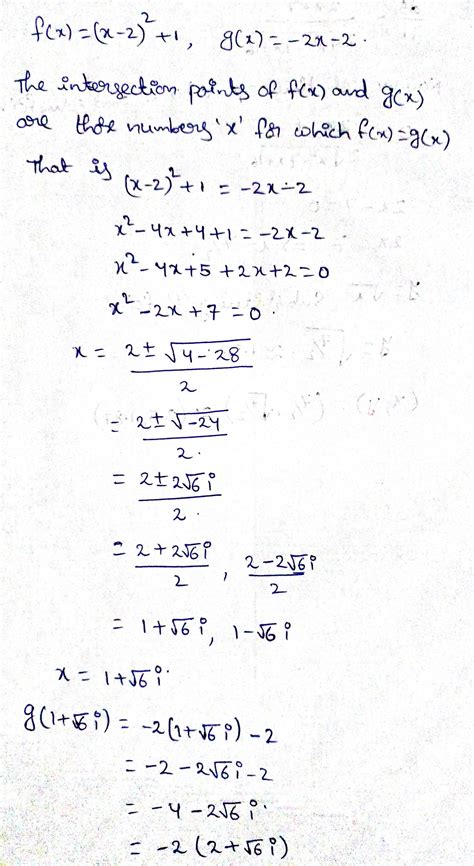 f(x) = (x-2)² + 1, g(x) = -2x - 2.
The intersection points of f(x) and g(x)
are those numbers 'x' for which f(x) = g(x)
That is
(x-2)² + 1 = -2x - 2
x² - 4x + 4 + 1 = -2x - 2
x² - 4x + 5 + 2x + 2 = 0
x² - 2x + 7 = 0.
x = (2 ± √(4 - 28))/2
= (2 ± √-24)/2.
= (2 ± 2√6 i)/2.
= (2 + 2√6 i)/2, (2 - 2√6 i)/2
= 1 + √6 i, 1 - √6 i
x = 1 + √6 i.
g(1 + √6 i) = -2(1 + √6 i) - 2
= -2 - 2√6 i - 2
= -4 - 2√6 i.
= -2(2 + √6 i)